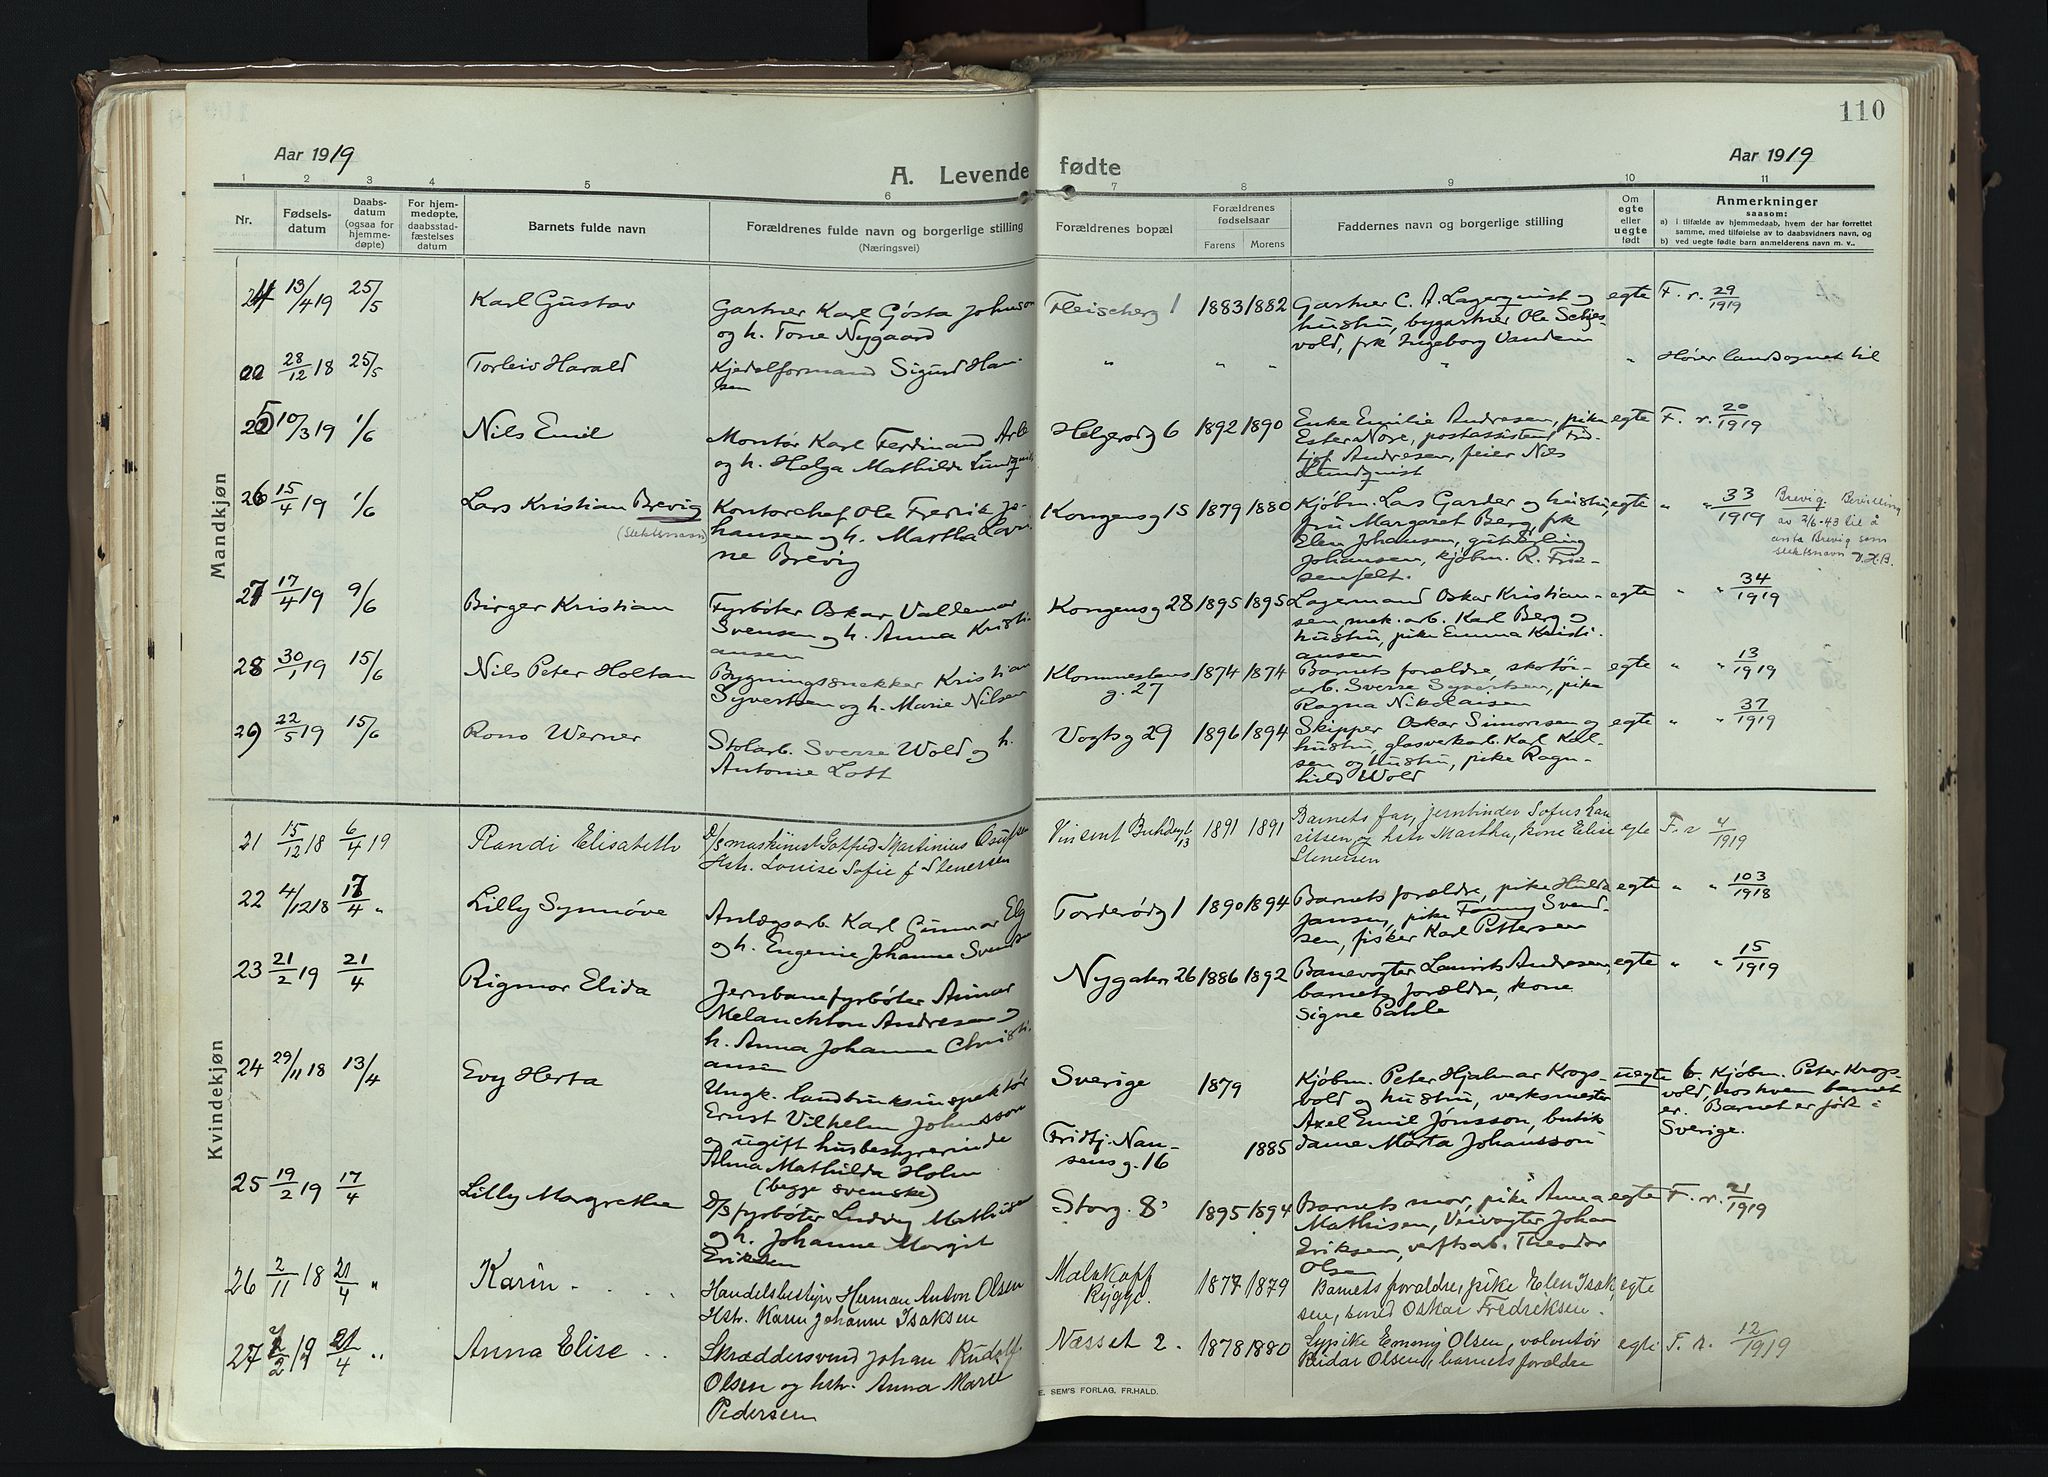 110
Aar 1919
A. Levende fødte
Aar 1919
1 2 3 4 5 6 7 8 9 10 11
Nr.
Fødsels-
datum
Daabs-
datum
(ogsaa for
hjemme-
døpte)
For hjem-
medøpte,
daabsstad-
fæstelses
datum
Barnets fulde navn
Forældrenes fulde navn og borgerlige stilling
(Næringsvei)
Forældrenes bopæl
Forældrenes
fødselsaar
Farens Morens
Faddernes navn og borgerlige stilling
Om
egte
eller
uegte
født
Anmerkninger
saasom:
a) i tilfælde av hjemmedaab, hvem der har forrettet
samme, med tilføielse av to daabsvidners navn, og
b) ved uegte fødte barn anmelderens navn m. v..
Mandkjøn
24 13/4 19 25/5 Karl Gustav
Gartner Karl Gösta Johnson
og h. Tone Nygaard
Fleischerg 1 1883 1882
Gartner C. A. Lagerquist og
hustru, bygartner Ole Schjes-
vold, frk Ingeborg Vandem
egte F. r. 29/1919
28/12 18 25/5 Torleiv Harald
Kjedelformand Sigurd Han-
sen
" " " " "
Hører landsognet til
25 10/3 19 1/6 Nils Emil
Montør Karl Ferdinand Arle
og h. Helga Mathilde Lundquist
Helgerødg 6 1892 1890
Enke Emilie Andresen, pike
Ester Nore, postassistent Frid-
tjof Andresen, feier Nils
Lundquist
egte F. r. 20/1919
26 15/4 19 1/6 Lars Kristian Brevig
(Slektsnavn)
Kontorchef Ole Fredrik Jo-
hansen og h. Martha Lovi-
ne Brevig
Kongensg 15 1879 1880
Kjøbm. Lars Garder og hustru,
fru Margaret Berg, frk
Elen Johansen, gut Erling
Johansen, kjøbm. R. Frie-
senfelt.
egte " " 33/1919
Brevig. Bevilling
av 2/6-43 til å
anta Brevig som
slektsnavn H.B.
27 17/4 19 9/6 Birger Kristian
Fyrbøter Oskar Valdemar
Svensen og h. Anna Kristi-
ansen
Kongensg 28 1895 1895
Lagermand Oskar Kristian-
sen, mek. arb. Karl Berg og
hustru, pike Emma Kristi-
ansen
egte " " 34/1919
28 30/1 19 15/6 Nils Peter Holtan
Bygningssnekker Kristian
Syvertsen og h. Marie Nilsen
g. 27 1874 1874
Barnets forældre, skotøi-
arb. Sverre Syvertsen, pike
Ragna Nikolaisen
egte " " 13/1919
29 22/5 19 15/6 Rono Werner
Stolarb. Sverre Wold og h.
Antonie Lott
Vogtsg 29 1896 1894
Skipper Oskar Simonsen og
hustru, glasverkarb. Karl Karl-
sen og hustru, pike Ragn-
hild Wold
egte " " 37/1919
Kvindekjøn
21 15/12 18 6/4 19 Randi Elisabeth
D/S maskinist Gotfred Martinius
Hstr. Louise Sofie f Stenersen
Vincent 1891 1891
Barnets far, jernbinder Sofus Lau-
ritsen og hstr Martha, kone Elise
Stenersen
egte F. r 4/1919
22 4/12 18 17/4 " Lilly Synnøve
Anlægsarb. Karl Gunnar Elg
og h. Eugenie Johanne Svendsen
Torderødg 1 1890 1894
Barnets forældre, pike Hulda
Jansen, pike Fanny Svend-
sen, fisker Karl Pettersen
egte " " 103/1918
23 21/2 19 21/4 Rigmor Elida
Jernbanefyrbøter Einar
Melanchton Andresen og
h. Anna Johanne Christi-
ansen
Nygaten 26 1886 1892
Banevogter Laurits Andresen,
barnets forældre, kone
Signe Pahle
egte " " 15/1919
24 29/11 18 13/4 Evy Herta
Ungk. landbruksinspektør
Ernst Vilhelm Johnsson
og ugift husbestyrerinde
Alma Mathilda Holm
(begge svenske)
Sverige 1879
Fridtj. Nan-
sensg. 16 1885
Kjøbm. Peter Hjalmar Krogs-
vold og hustru, verksmester
Axel Emil Jönsson, butik-
dame Märta Johansson
uegte b. Kjøbm. Peter Krogs-
vold, hos hvem barnet
er. Barnet er født i
Sverige.
25 19/2 19 17/4 Lilly Margrethe
D/S fyrbøter Ludvig Mathisen
og h. Johanne Margit
Eriksen
Storg. 8 1895 1894
Barnets mor, pike Anna
Mathisen, Veivogter Johan
Eriksen, verftsarb. Theodor
Olsen
egte F. r. 21/1919
26 2/11 18 21/4 " Karin
Handelsbestyrer Herman Anton Olsen
Hstr. Karen Johanne Isaksen
Rygge. 1877 1879
Barnets foraldre, pike Elen Isak-
sen, Oskar Fredriksen.
egte
27 2/2 19 21/4 " Anna Elise
Skræddersvend Johan Rudolf
Olsen og hstr. Anna Marie
Pedersen
Næsset 2. 1878 1880
Sypike Emmy Olsen, volontør
Reidar Olsen, barnets foraldre
egte F. r. 12/1919
E. SEM'S FORLAG, FR.HALD.